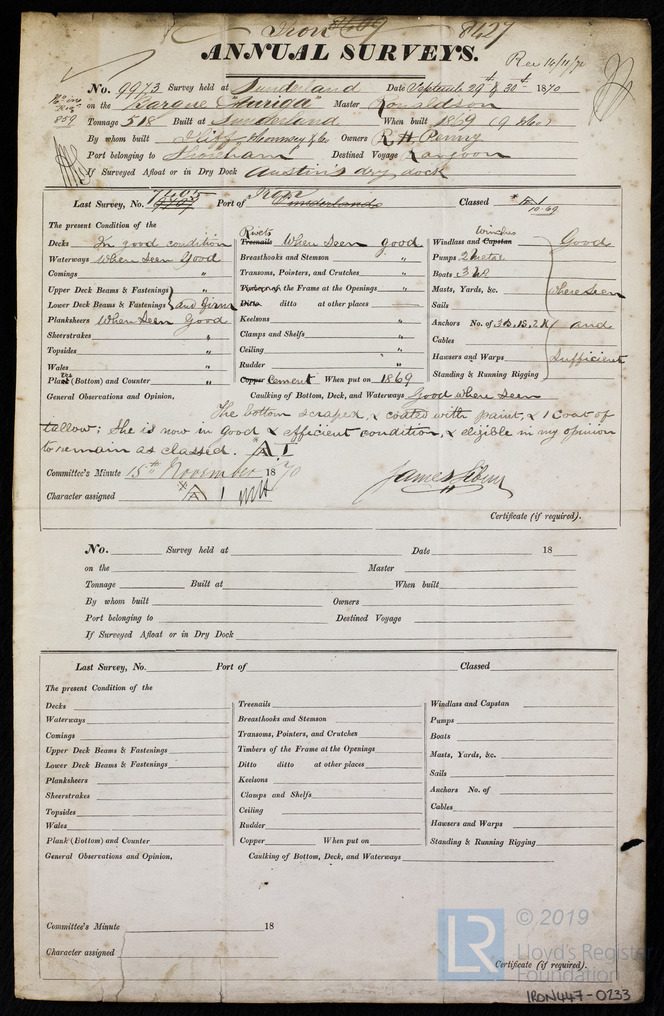 Iron 8427
ANNUAL SURVEYS.
Rec 14/11/70
No. 9973 Survey held at Sunderland Date Septembr 29th & 30th 1870
on the Barque "Auriga" Master Ronaldson
859
Tonnage 518 Built at Sunderland When built 1869
By whom built Iliff Mounsey & Co Owners R. H. Penny
Port belonging to Shoreham Destined Voyage Rangoon
If Surveyed Afloat or in Dry Dock Austin's dry dock
Last Survey, No. 7405 Port of Iron Sunderland Classed A 1 10.69
The present Condition of the
Decks In good condition
Waterways When Seen Good
Comings "
Upper Deck Beams & Fastenings
Lower Deck Beams & Fastenings and Girn
Planksheers When Seen Good
Sheerstrakes "
Topsides "
Wales "
Plates (Bottom) and Counter "
Rivets Treenails When Seen good
Breasthooks and Stemson "
Transoms, Pointers, and Crutches "
Timbers of the Frame at the Openings "
Ditto ditto at other places
Keelsons "
Clamps and Shelfs "
Ceiling "
Rudder "
Copper Cement When put on 1869
Windlass
Windlass and Capstan Good
Pumps 2 Metal
Boats 3
Masts, Yards, &c. where seen
Sails
Anchors No. of 3B, 1S, 2K and
Cables
Hawsers and Warps Sufficient
Standing & Running Rigging
General Observations and Opinion, Caulking of Bottom, Deck, and Waterways Good where seen
The bottom scraped, & coated with paint, & 1 coat of
tallow; She is now in good & efficient condition, & eligible in my opinion
to remain as classed. A 1
Committee's Minute 15th November 1870
Character assigned A 1
Certificate (if required).
No. Survey held at Date 18
on the Master
Tonnage Built at When built
By whom built Owners
Port belonging to Destined Voyage
If Surveyed Afloat or in Dry Dock
Last Survey, No. Port of Classed
The present Condition of the
Decks
Waterways
Comings
Upper Deck Beams & Fastenings
Lower Deck Beams & Fastenings
Planksheers
Sheerstrakes
Topsides
Wales
Plank (Bottom) and Counter
Treenails
Breasthooks and Stemson
Transoms, Pointers, and Crutches
Timbers of the Frame at the Openings
Ditto ditto at other places
Keelsons
Clamps and Shelfs
Ceiling
Rudder
Copper When put on
Windlass and Capstan
Pumps
Boats
Masts, Yards, &c.
Sails
Anchors No. of
Cables
Hawsers and Warps
Standing & Running Rigging
General Observations and Opinion, Caulking of Bottom, Deck, and Waterways
Committee's Minute 18
Character assigned
Certificate (if required).
LR © 2019
Lloyd's Register
Foundation
IRON447-0233